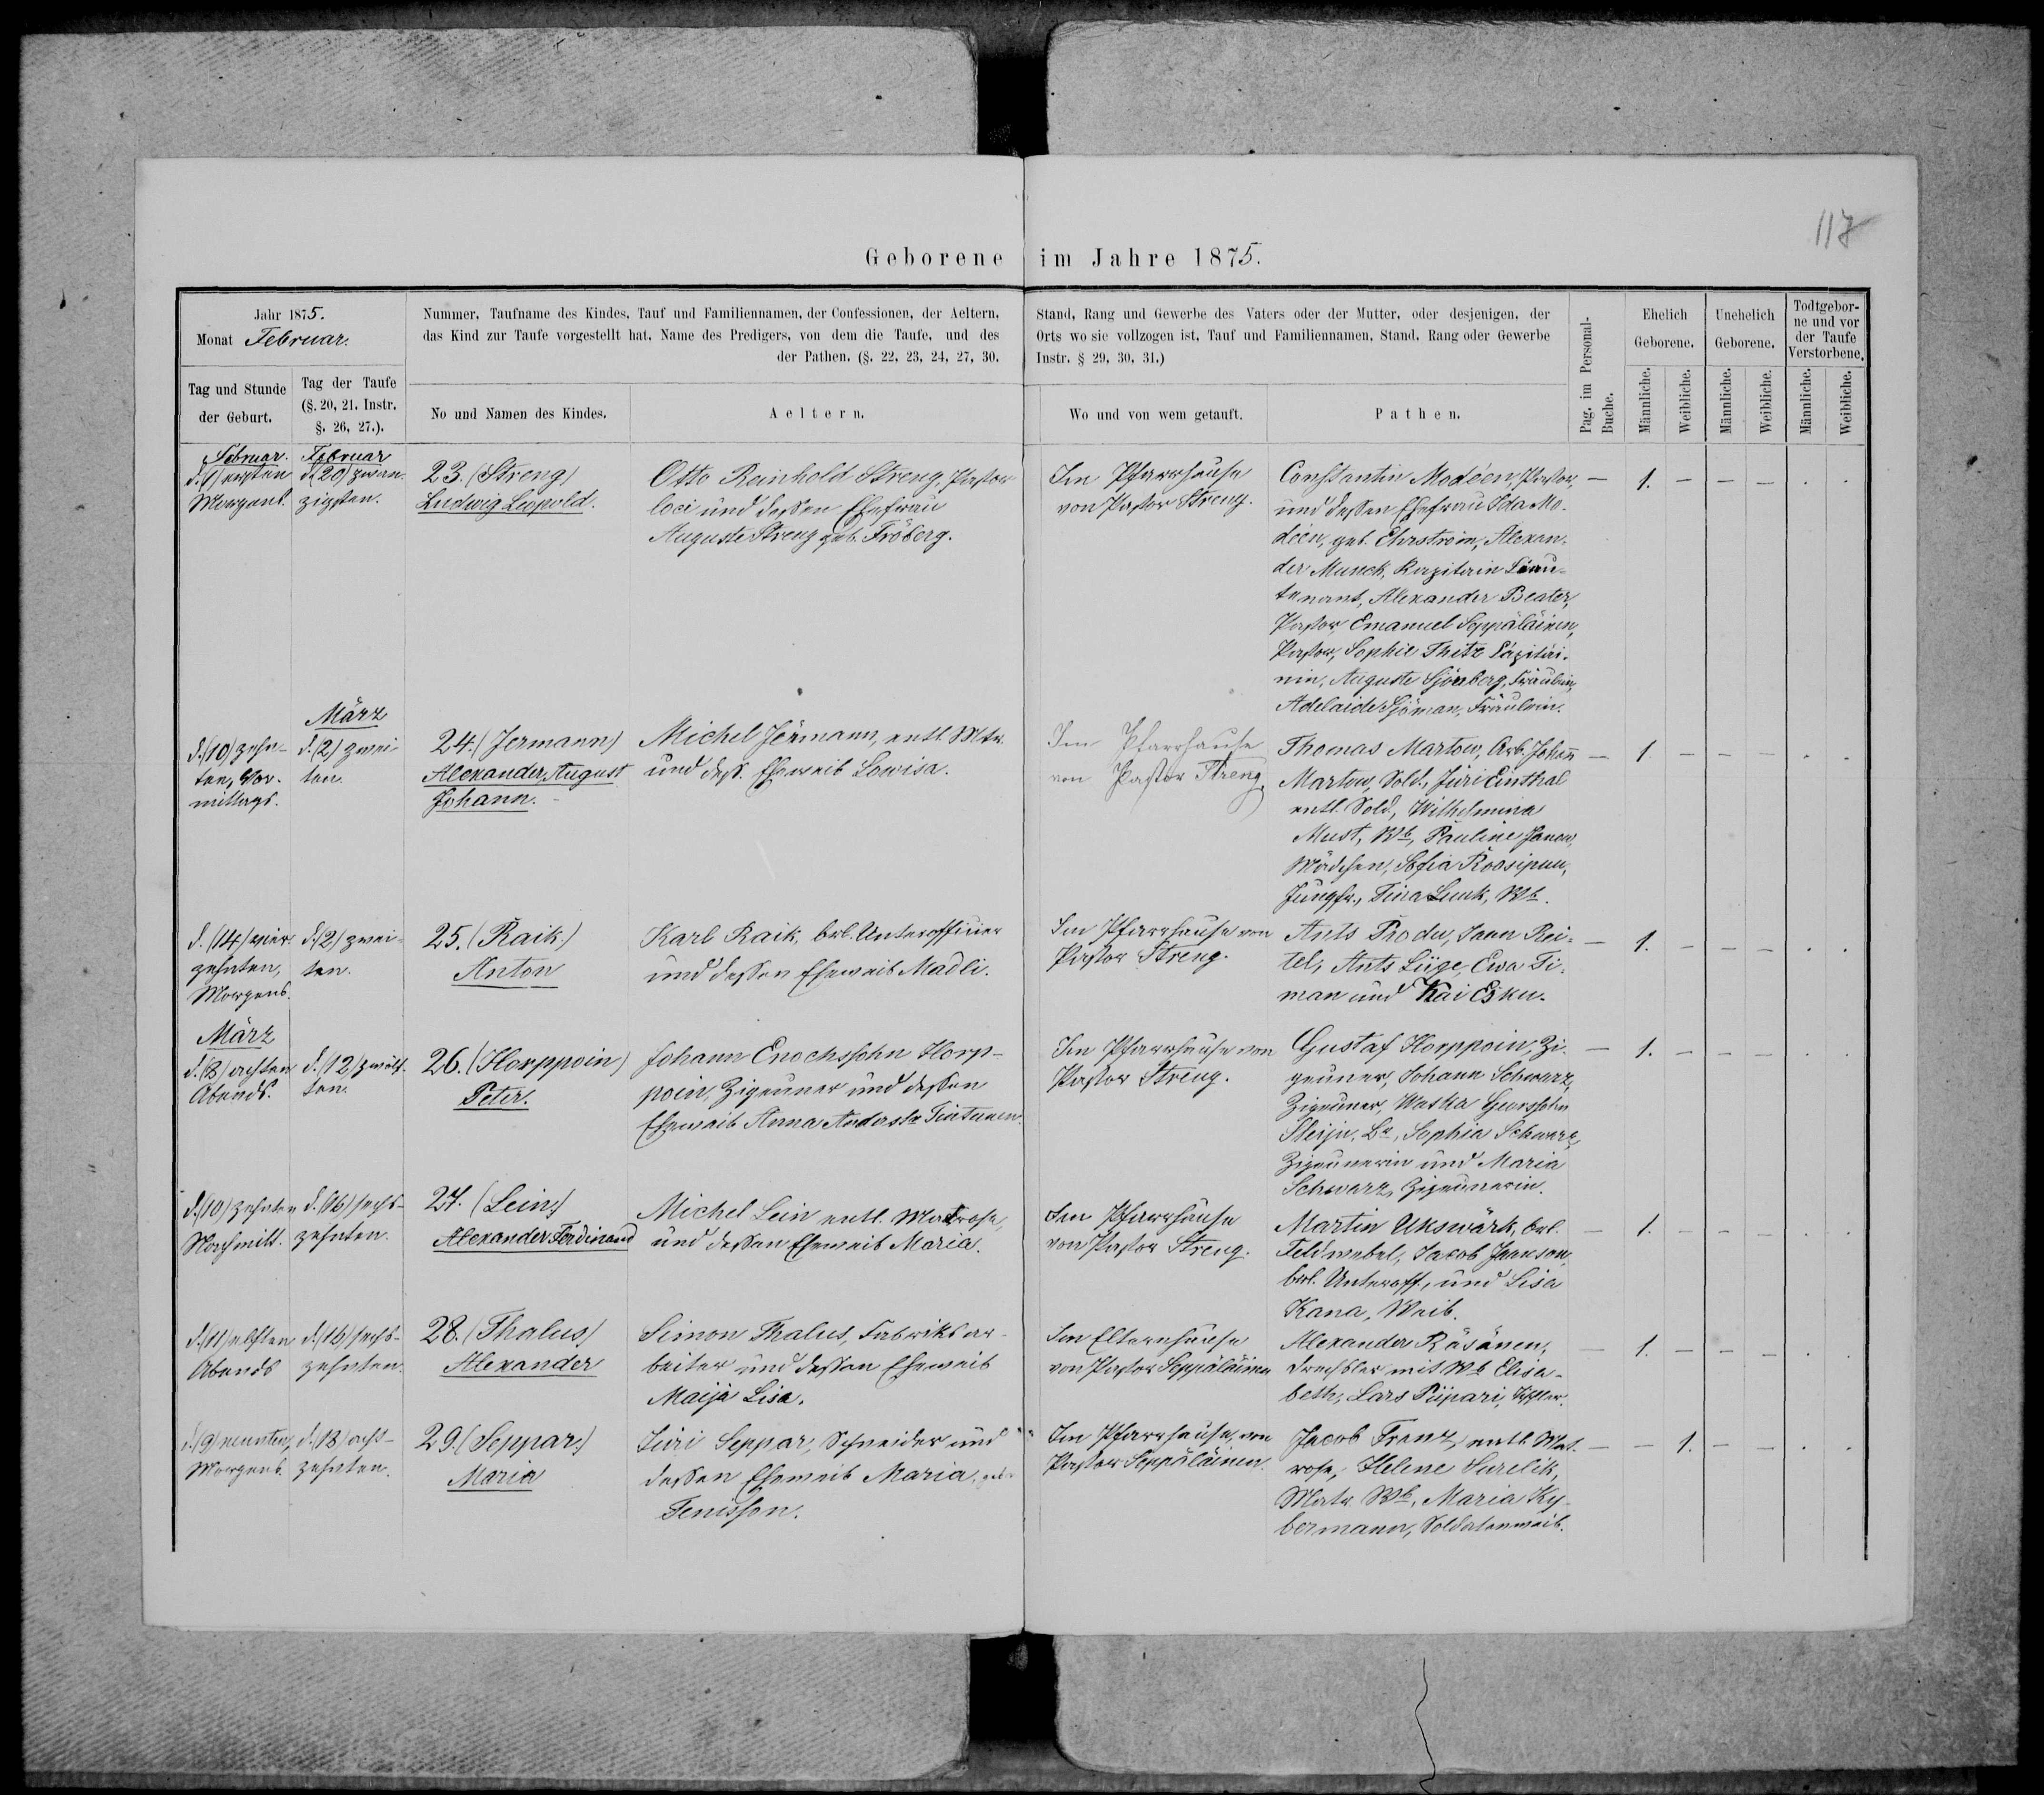 117
Geborene im Jahre 1875.
Jahr 1875.
Monat Februar.
Nummer, Taufname des Kindes, Tauf und Familiennamen, der Confessionen, der Aeltern,
das Kind zur Taufe vorgestellt hat, Name des Predigers, von dem die Taufe, und des
der Pathen. (§. 22, 23, 24, 27, 30.
Stand, Rang und Gewerbe des Vaters oder der Mutter, oder desjenigen, der
Orts wo sie vollzogen ist, Tauf und Familiennamen, Stand, Rang oder Gewerbe
Instr. § 29, 30, 31.)
Pag. im Personal-
Buche.
Ehelich
Geborene.
Unehelich
Geborene.
Todtgebor-
ne und vor
der Taufe
Verstorbene.
Tag und Stunde
der Geburt.
Tag der Taufe
(§. 20, 21. Instr.
§. 26, 27.).
No und Namen des Kindes.
Aeltern.
Wo und von wem getauft.
Pathen.
Männliche.
Weibliche.
Männliche.
Weibliche.
Männliche.
Weibliche.
Februar.
d. (1) ersten
Morgens.
Februar
d. (20) zwan-
zigsten.
23. (Streng)
Ludwig Leopold.
Otto Reinhold Streng, Pastor
loci und dessen Ehefrau
Auguste Streng geb. Fröberg.
Im Pfarrhause
von Pastor Streng.
Constantin Modéen, Pastor,
und dessen Ehefrau Ida Mo-
déen, geb. Ehrström, Alexan-
der Munck, Kapitain Lieu-
tenant, Alexander Beater,
Pastor, Emanuel Seppäläinen,
Pastor, Sophie Thitz Capitäi-
nin, Auguste Sjönberg, Fräulein,
Adelaide Sjöman, Fräulein.
— 1. — — — . .
d. (10) zehn-
ten, Vor-
mittags.
März
d. (2) zwei-
ten.
24. (Jermann)
Alexander August
Johann.
Michel Jermann, entl. Mtr.
und dess. Eheweib Lowisa.
Im Pfarrhause
von Pastor Streng.
Thomas Martow, Arb. Johan̄
Martow, Sold., Jüri Einthal
entl. Sold., Wilhelmina
Must, Wb, Pauline
Mädchen, Sofia Roosipuu,
Jungfr., Tina Wb.
— 1. — — — . .
d. (14) vier-
zehnten,
Morgens.
d. (2) zwei-
ten.
25. (Raik)
Anton
Karl Raik, brl. Unterofficier
und dessen Eheweib Madli.
Im Pfarrhause von
Pastor Streng.
Ants Produ, Jaan Rei-
tel, Ants Lüge, Ewa Ti-
man und Kai Esku.
— 1. — — — . .
März
d. (8) achten
Abends.
d. (12) zwölf-
ten.
26. (Horppoin)
Peter.
Johann Enochssohn Horp-
poin, Zigeuner und dessen
Eheweib Anna Tintunen.
Im Pfarrhause von
Pastor Streng.
Gustaf Horppoin, Zi-
geuner, Johann Schwarz,
Zigeuner, Waska
Sophia Schwarz,
Zigeunerin und Maria
Schwarz, Zigeunerin.
— 1. — — — . .
d. (10) zehnten
Nachmitt.
d. (16) sechs-
zehnten.
27. (Lein)
Alexander Ferdinand
Michel Lein entl. Matrose,
und dessen Eheweib Maria.
Im Pfarrhause
von Pastor Streng.
Martin Ukswärk, brl.
Feldwebel, Jacob Jaakson,
brl. Unteroff., und Lisa
Kana, Weib.
— 1. — — — . .
d. (11) elften
Abends
d. (16) sechs-
zehnten.
28. (Thalus)
Alexander
Simon Thalus, Fabrikbar-
beiter und dessen Eheweib
Maija Lisa.
Im Elternhause
von Pastor Seppäläinen
Alexander Räsänen,
Drechsler mit Wb Elisa-
beth, Lars Piipari,
— 1. — — — . .
d. (9) neunten,
Morgens.
d. (18) acht-
zehnten.
29. (Seppar.)
Maria
Jüri Seppar, Schneider und
dessen Eheweib Maria, geb.
Tenisson.
Im Pfarrhause, von
Pastor Seppäläinen.
Jacob Frenz, entl. Mat-
rose, Helene Surelik,
Matr. Wb, Maria Ky-
bermann, Soldatenweib.
— — 1. — — . .